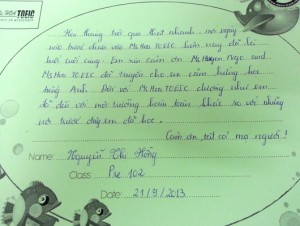 Ms Hoa TOEIC
Hai tháng trôi qua thật nhanh, mới ngày
nào bước chân vào Ms Hoa TOEIC hôm nay đã là
buổi cuối cùng. Em xin cảm ơn Ms. Huyen Ngo and
Ms Hoa TOEIC đã truyền cho em cảm hứng học
tiếng Anh. Đến với Ms Hoa TOEIC dường như em
đã đến với môi trường hoàn toàn khác so với những
nơi trước đây em đã học.
Cảm ơn tất cả mọi người!
Name: Nguyễn Thị Hồng
Class: Pre 102
Date: 21/9/2013